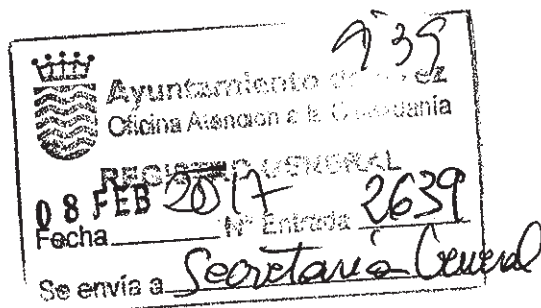 9:39
Ayuntamiento de Jerez
Oficina Atención a la Ciudadanía
REGISTRO GENERAL
08 FEB 2017
Fecha Nº Entrada 2639
Se envía a Secretaría General